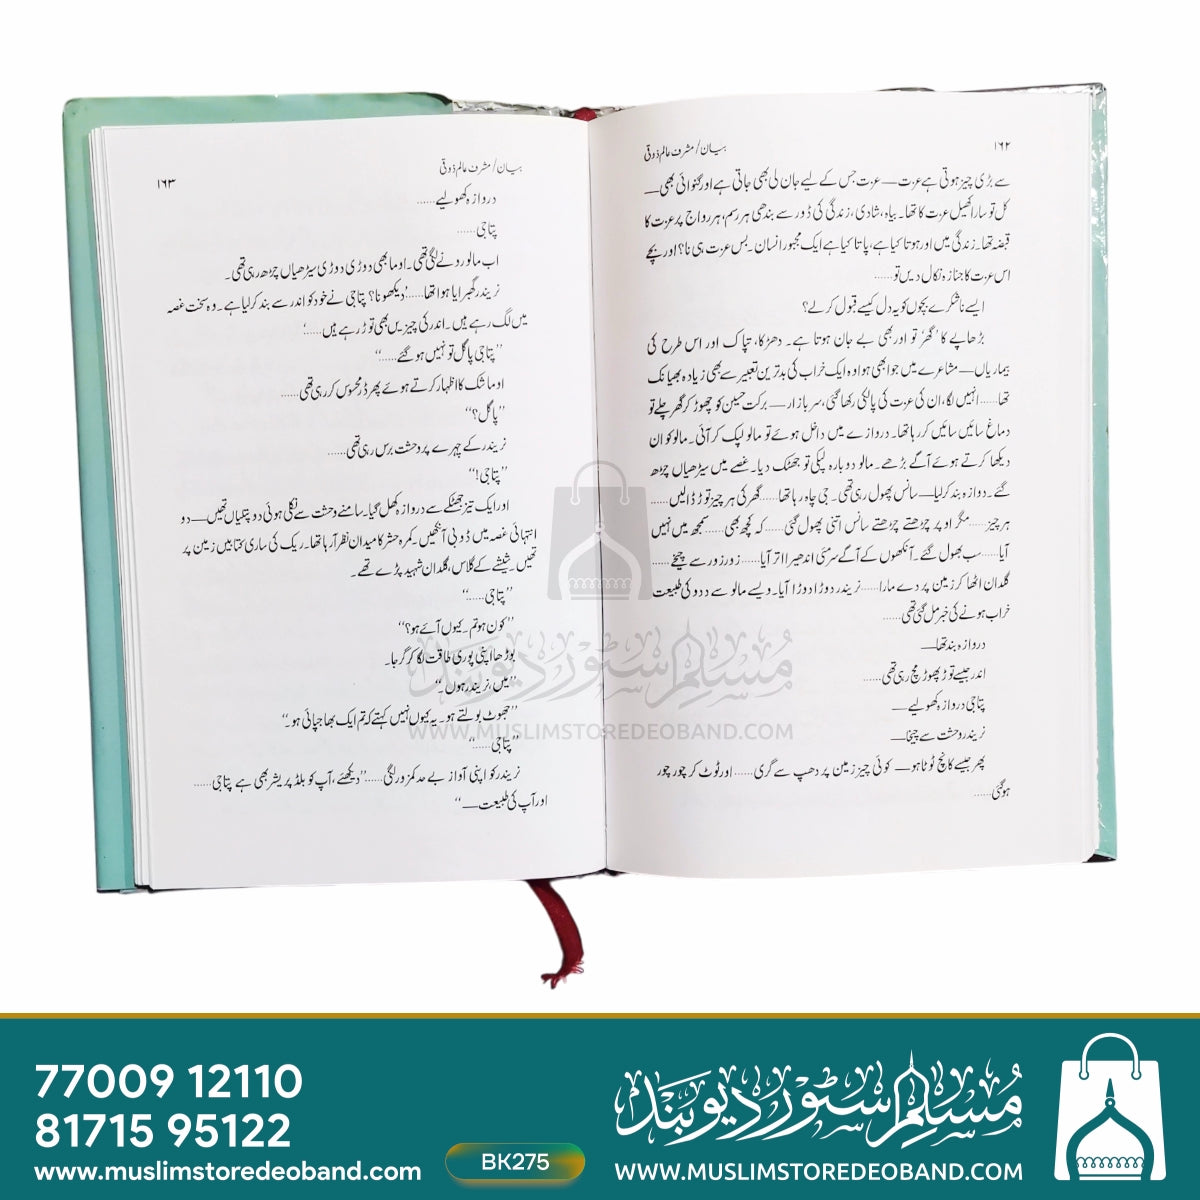 ۱۶۲
بیان/مشرف عالم ذوقی
سے بڑی چیز ہوتی ہے عزت — عزت جس کے لیے جان لی بھی جاتی ہے اور گنوائی بھی —
کل تو سارا کھیل عزت کا تھا۔ بیاہ، شادی، زندگی کی ڈور سے بندھی ہر رسم، ہر رواج پر عزت کا
قبضہ تھا۔ زندگی میں اور ہوتا کیا ہے، پاتا کیا ہے ایک مجبور انسان۔ بس عزت ہی نا؟ اور بچے
اس عزت کا جنازہ نکال دیں تو......
ایسے ناشکرے بچوں کو یہ دل کیسے قبول کر لے؟
بڑھاپے کا 'گھر' تو اور بھی بے جان ہوتا ہے۔ دھڑکا، تپاک اور اس طرح کی
بیماریاں — مشاعرے میں جو ابھی ہوا وہ ایک خراب کی بدترین تعبیر سے بھی زیادہ بھیانک
تھا...... انہیں لگا، ان کی عزت کی پالکی رکھا گئی، سر بازار — برکت حسین کو چھوڑ کر گھر چلے تو
دماغ سائیں سائیں کر رہا تھا۔ دروازے میں داخل ہوئے تو مالو لپک کر آئی۔ مالو کو ان
دیکھا کرتے ہوئے آگے بڑھے۔ مالو دوبارہ لپکی تو جھٹک دیا۔ غصے میں سیڑھیاں چڑھ
گئے۔ دوازہ بند کر لیا — سانس پھول رہی تھی۔ جی چاہ رہا تھا...... گھر کی ہر چیز توڑ ڈالیں......
ہر چیز...... مگر اوپر چڑھتے چڑھتے سانس اتنی پھول گئی...... کہ کچھ بھی...... سمجھ میں نہیں
آیا...... سب بھول گئے۔ آنکھوں کے آگے سرمئی اندھیرا اتر آیا...... زور زور سے چیخے......
گلدان اٹھا کر زمین پر دے مارا...... نریندر دوڑا دوڑا آیا۔ ویسے مالو سے ددو کی طبیعت
خراب ہونے کی خبر مل گئی تھی......
دروازہ بند تھا —
اندر جیسے توڑ پھوڑ مچ رہی تھی......
پتاجی دروازہ کھولیے —
نریندر وحشت سے چیخا —
پھر جیسے کانچ ٹوٹا ہو — کوئی چیز زمین پر دھپ سے گری...... اور ٹوٹ کر چور چور
ہوگئی......
بیان/مشرف عالم ذوقی
۱۶۳
دروازہ کھولیے......
پتاجی......
اب مالو رونے لگی تھی۔ اوما بھی دوڑی دوڑی سیڑھیاں چڑھ رہی تھی۔
نریندر گھبرایا ہوا تھا......'دیکھو نا؟ پتاجی نے خود کو اندر سے بند کر لیا ہے۔ وہ سخت غصہ
میں لگ رہے ہیں۔ اندر کی چیزیں بھی توڑ رہے ہیں......'
"پتاجی پاگل تو نہیں ہو گئے......"
اوما شک کا اظہار کرتے ہوئے پھر ڈر محسوس کر رہی تھی......
"پاگل؟"
نریندر کے چہرے پر وحشت برس رہی تھی......
"پتاجی!"
اور ایک تیز جھٹکے سے دروازہ کھل گیا۔ سامنے وحشت سے نکلی ہوئی دو پتلیاں تھیں — دو
انتہائی غصہ میں ڈوبی آنکھیں۔ کمرہ حشر کا میدان نظر آرہا تھا۔ ریک کی ساری کتابیں زمین پر
تھیں۔ شیشے کے گلاس، گلدان شہید پڑے تھے۔
"پتاجی......"
"کون ہو تم۔ کیوں آئے ہو؟"
بوڑھا اپنی پوری طاقت لگا کر گرجا۔
"میں، نریندر ہوں۔"
"جھوٹ بولتے ہو۔ یہ کیوں نہیں کہتے کہ تم ایک بھاجپائی ہو۔"
"پتاجی......"
نریندر کو اپنی آواز بے حد کمزور لگی......"دیکھئے، آپ کو بلڈ پریشر بھی ہے پتاجی......
اور آپ کی طبیعت —"
مسلم سٹور دیوبند
WWW.MUSLIMSTOREDEOBAND.COM
77009 12110
81715 95122
www.muslimstoredeoband.com
BK275
مسلم سٹور دیوبند
WWW.MUSLIMSTOREDEOBAND.COM